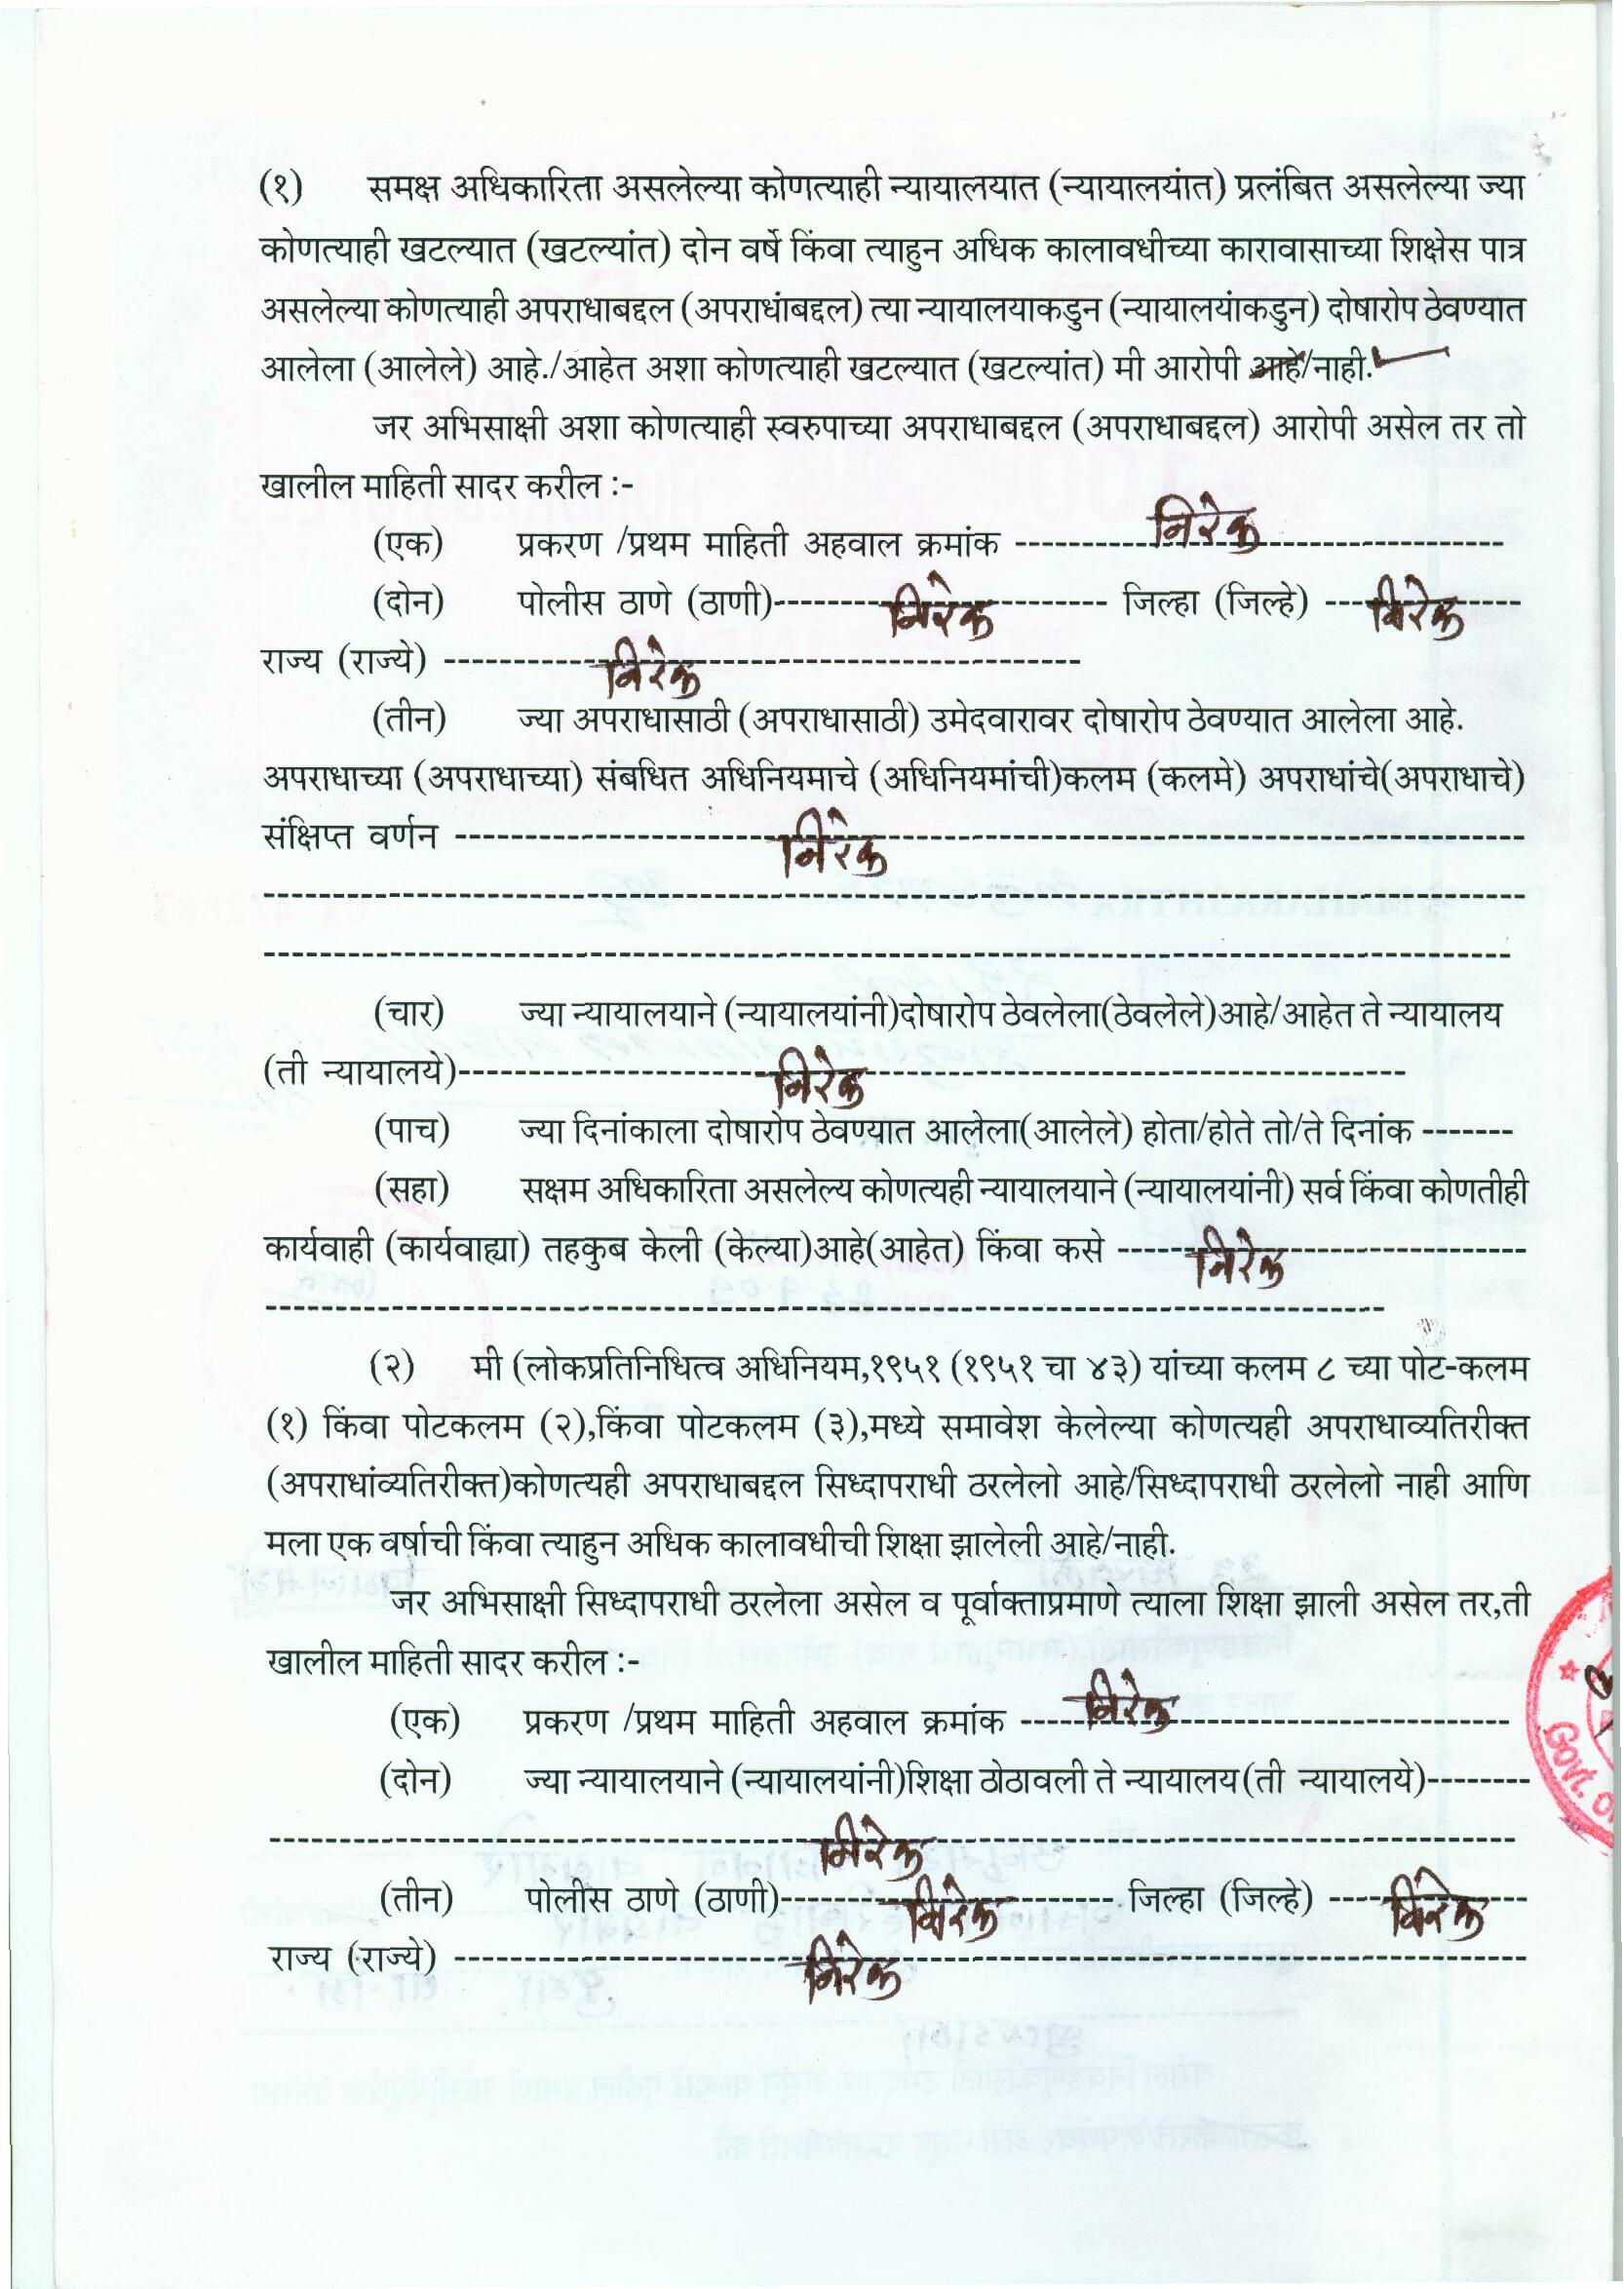 (१) समक्ष अधिकारिता असलेल्या कोणत्याही न्यायालयात (न्यायालयांत) प्रलंबित असलेल्या ज्या
कोणत्याही खटल्यात (खटल्यांत) दोन वर्षे किंवा त्याहुन अधिक कालावधीच्या कारावासाच्या शिक्षेस पात्र
असलेल्या कोणत्याही अपराधाबद्दल (अपराधांबद्दल) त्या न्यायालयाकडुन (न्यायालयांकडुन) दोषारोप ठेवण्यात
आलेला (आलेले) आहे./आहेत अशा कोणत्याही खटल्यात (खटल्यांत) मी आरोपी आहे/नाही.
जर अभिसाक्षी अशा कोणत्याही स्वरुपाच्या अपराधाबद्दल (अपराधाबद्दल) आरोपी असेल तर तो
खालील माहिती सादर करील :-
(एक) प्रकरण /प्रथम माहिती अहवाल क्रमांक निरंक
(दोन) पोलीस ठाणे (ठाणी) निरंक जिल्हा (जिल्हे) निरंक
राज्य (राज्ये) निरंक
(तीन) ज्या अपराधासाठी (अपराधासाठी) उमेदवारावर दोषारोप ठेवण्यात आलेला आहे.
अपराधाच्या (अपराधाच्या) संबधित अधिनियमाचे (अधिनियमांची)कलम (कलमे) अपराधांचे(अपराधाचे)
संक्षिप्त वर्णन निरंक
(चार) ज्या न्यायालयाने (न्यायालयांनी)दोषारोप ठेवलेला(ठेवलेले)आहे/आहेत ते न्यायालय
(ती न्यायालये) निरंक
(पाच) ज्या दिनांकाला दोषारोप ठेवण्यात आलेला(आलेले) होता/होते तो/ते दिनांक -------
(सहा) सक्षम अधिकारिता असलेल्य कोणत्यही न्यायालयाने (न्यायालयांनी) सर्व किंवा कोणतीही
कार्यवाही (कार्यवाह्या) तहकुब केली (केल्या)आहे(आहेत) किंवा कसे निरंक
(२) मी (लोकप्रतिनिधित्व अधिनियम,१९५१ (१९५१ चा ४३) यांच्या कलम ८ च्या पोट-कलम
(१) किंवा पोटकलम (२),किंवा पोटकलम (३),मध्ये समावेश केलेल्या कोणत्यही अपराधाव्यतिरीक्त
(अपराधांव्यतिरीक्त)कोणत्यही अपराधाबद्दल सिध्दापराधी ठरलेलो आहे/सिध्दापराधी ठरलेलो नाही आणि
मला एक वर्षाची किंवा त्याहुन अधिक कालावधीची शिक्षा झालेली आहे/नाही.
जर अभिसाक्षी सिध्दापराधी ठरलेला असेल व पूर्वाक्ताप्रमाणे त्याला शिक्षा झाली असेल तर,ती
खालील माहिती सादर करील :-
(एक) प्रकरण /प्रथम माहिती अहवाल क्रमांक निरंक
(दोन) ज्या न्यायालयाने (न्यायालयांनी)शिक्षा ठोठावली ते न्यायालय(ती न्यायालये)--------
निरंक
(तीन) पोलीस ठाणे (ठाणी) निरंक जिल्हा (जिल्हे) निरंक
राज्य (राज्ये) निरंक
GOVT.